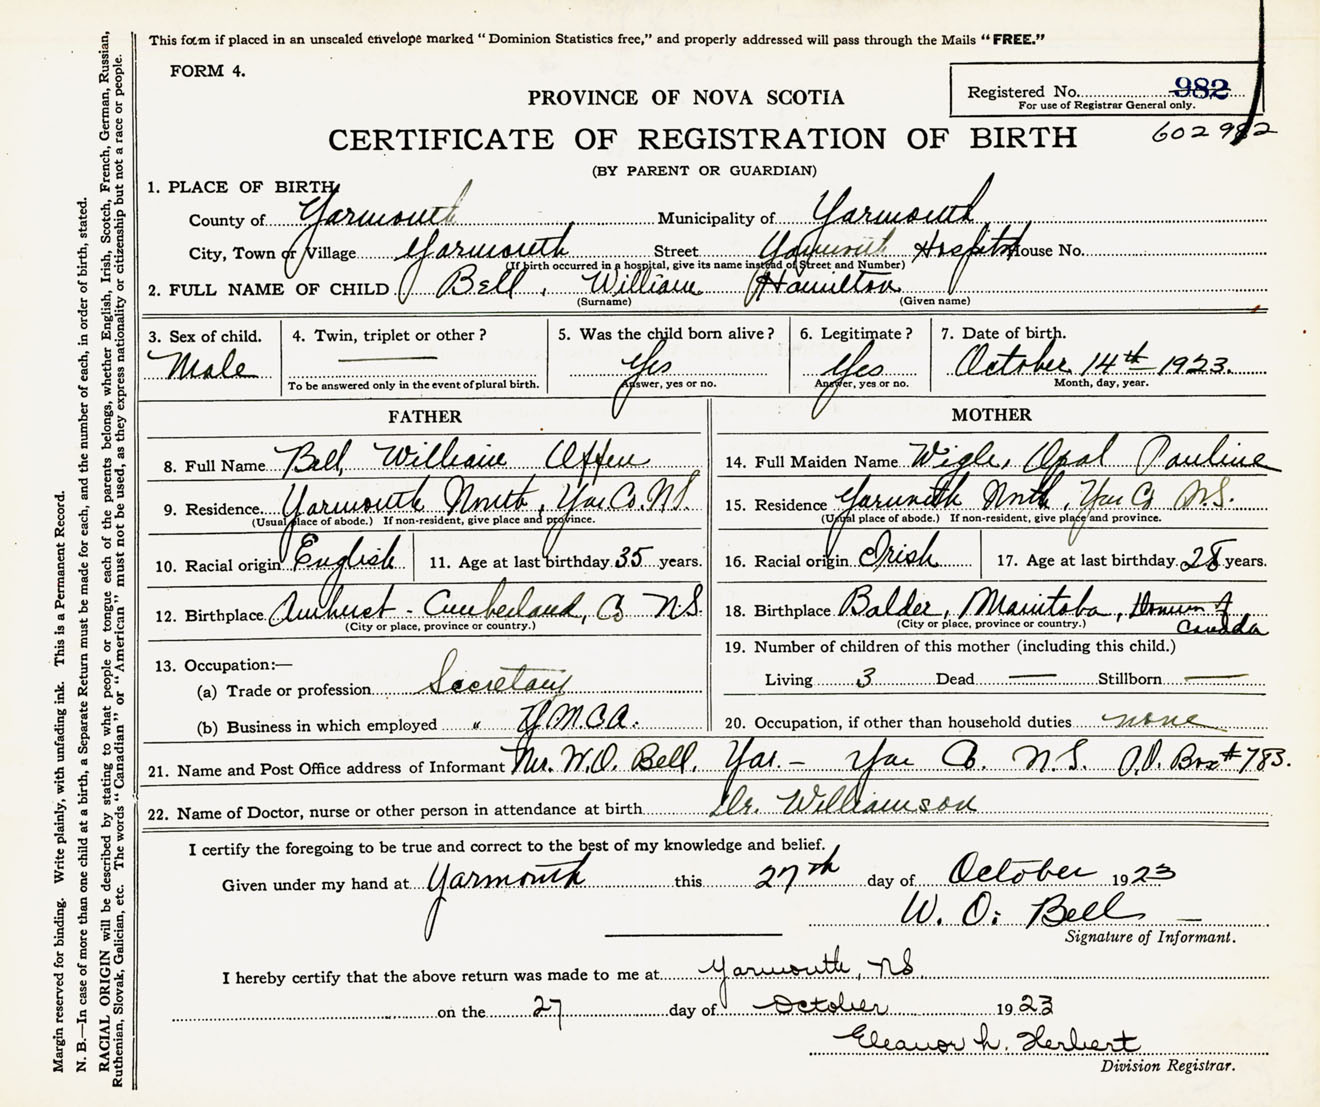 This form if placed in an unsealed envelope marked " Dominion Statistics free," and properly addressed will pass through the Mails "FREE."
FORM 4.
Registered No. 982
For use of Registrar General only.
PROVINCE OF NOVA SCOTIA
602982
CERTIFICATE OF REGISTRATION OF BIRTH
(BY PARENT OR GUARDIAN)
1. PLACE OF BIRTH
County of Yarmouth Municipality of Yarmouth
City, Town or Village Yarmouth Street Yarmouth Hospital House No.
(If birth occurred in a hospital, give its name instead of Street and Number)
2. FULL NAME OF CHILD Bell, William Hamilton
(Surname) (Given name)
3. Sex of child. 4. Twin, triplet or other ? 5. Was the child born alive? 6. Legitimate ? 7. Date of birth.
Male Yes Yes October 14th 1923.
To be answered only in the event of plural birth. Answer, yes or no. Answer, yes or no. Month, day, year.
FATHER
8. Full Name Bell, William Offen
9. Residence. Yarmouth North, Yar Co. N.S.
(Usual place of abode.) If non-resident, give place and province.
10. Racial origin English 11. Age at last birthday 35 years.
12. Birthplace Amherst - Cumberland, Co N.S.
(City or place, province or country.)
13. Occupation:—
(a) Trade or profession Secretary
(b) Business in which employed " Y.M.C.A.
MOTHER
14. Full Maiden Name Wigle, Opal Pauline
15. Residence Yarmouth North, Yar Co N.S.
(Usual place of abode.) If non-resident, give place and province.
16. Racial origin Irish 17. Age at last birthday 28 years.
18. Birthplace Balder, Manitoba, Domin of Canada
(City or place, province or country.)
19. Number of children of this mother (including this child.)
Living 3 Dead — Stillborn —
20. Occupation, if other than household duties none
21. Name and Post Office address of Informant W.O. Bell, Yar. - Yar Co. N.S. P.O. Box #783.
22. Name of Doctor, nurse or other person in attendance at birth Dr. Williamson
I certify the foregoing to be true and correct to the best of my knowledge and belief.
Given under my hand at Yarmouth this 27th day of October 1923
W. O. Bell
Signature of Informant.
I hereby certify that the above return was made to me at Yarmouth, NS
on the 27 day of October 1923
Eleanor h. Herbert
Division Registrar.
Margin reserved for binding. Write plainly, with unfading ink. This is a Permanent Record.
N. B.—In case of more than one child at a birth, a Separate Return must be made for each, and the number of each, in order of birth, stated.
RACIAL ORIGIN will be described by stating to what people or tongue each of the parents belongs, whether English, Irish, Scotch, French, German, Russian,
Ruthenian, Slovak, Galician, etc. The words "Canadian" or "American" must not be used, as they express nationality or citizenship but not a race or people.